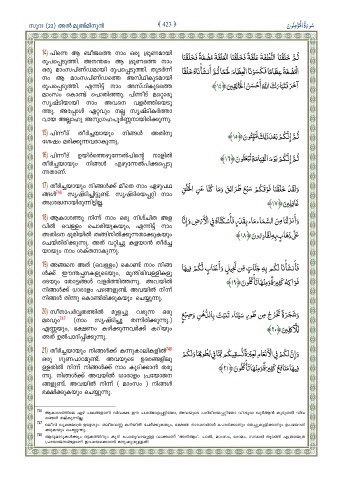 സൂറ: (23) അൽ മുഅ്മിനൂൻ
﴾ 423 ﴿
سُورَةُ الْمُؤْمِنُونَ
14) പിന്നെ ആ ബീജത്തെ നാം ഒരു ഭ്രൂണമായി
രൂപപ്പെടുത്തി. അനന്തരം ആ ഭ്രൂണത്തെ നാം
ഒരു മാംസപിണ്ഡമായി രൂപപ്പെടുത്തി. തുടർന്ന്
നാം ആ മാംസപിണ്ഡത്തെ അസ്ഥികൂടമായി
രൂപപ്പെടുത്തി. എന്നിട്ട് നാം അസ്ഥികൂടത്തെ
മാംസം കൊണ്ട് പൊതിഞ്ഞു. പിന്നീട് മറ്റൊരു
സൃഷ്ടിയായി നാം അവനെ വളർത്തിയെടു
ത്തു. അപ്പോൾ ഏറ്റവും നല്ല സൃഷ്ടികർത്താ
വായ അല്ലാഹു അനുഗ്രഹപൂർണ്ണനായിരിക്കുന്നു.
ثُمَّ خَلَقْنَا النُّطْفَةَ عَلَقَةً فَخَلَقْنَا الْعَلَقَةَ مُضْغَةً فَخَلَقْنَا
الْمُضْغَةَ عِظَامًا فَكَسَوْنَا الْعِظَامَ لَحْمًا ثُمَّ أَنشَأْنَاهُ خَلْقًا
آخَرَ فَتَبَارَكَ اللَّهُ أَحْسَنُ الْخَالِقِينَ ﴿١٤﴾
15) പിന്നീട് തീർച്ചയായും നിങ്ങൾ അതിനു
ശേഷം മരിക്കുന്നവരാകുന്നു.
ثُمَّ إِنَّكُم بَعْدَ ذَٰلِكَ لَمَيِّتُونَ ﴿١٥﴾
16) പിന്നീട് ഉയിർത്തെഴുന്നേൽപിന്റെ നാളിൽ
തീർച്ചയായും നിങ്ങൾ എഴുന്നേൽപിക്കപ്പെടു
ന്നതാണ്.
ثُمَّ إِنَّكُمْ يَوْمَ الْقِيَامَةِ تُبْعَثُونَ ﴿١٦﴾
17) തീർച്ചയായും നിങ്ങൾക്ക് മീതെ നാം ഏഴുപഥ
ങ്ങൾ സൃഷ്ടിച്ചിട്ടുണ്ട്. സൃഷ്ടിയെപ്പറ്റി നാം
അശ്രദ്ധനായിരുന്നിട്ടില്ല.
وَلَقَدْ خَلَقْنَا فَوْقَكُمْ سَبْعَ طَرَائِقَ وَمَا كُنَّا عَنِ الْخَلْقِ
غَافِلِينَ ﴿١٧﴾
18) ആകാശത്തു നിന്ന് നാം ഒരു നിശ്ചിത അള
വിൽ വെള്ളം ചൊരിയുകയും, എന്നിട്ട് നാം
അതിനെ ഭൂമിയിൽ തങ്ങിനിൽക്കുന്നതാക്കുകയും
ചെയ്തിരിക്കുന്നു. അത് വറ്റിച്ചു കളയാൻ തീർച്ച
യായും നാം ശക്തനാകുന്നു.
وَأَنزَلْنَا مِنَ السَّمَاءِ مَاءً بِقَدَرٍ فَأَسْكَنَّاهُ فِي الْأَرْضِ وَإِنَّا
عَلَىٰ ذَهَابٍ بِهِ لَقَادِرُونَ ﴿١٨﴾
19) അങ്ങനെ അത് (വെള്ളം) കൊണ്ട് നാം നിങ്ങ
ൾക്ക് ഈന്തപ്പനകളുടെയും, മുന്തിരിവള്ളികളു
ടെയും തോട്ടങ്ങൾ വളർത്തിത്തന്നു. അവയിൽ
നിങ്ങൾക്ക് ധാരാളം പഴങ്ങളുണ്ട്. അവയിൽ നിന്ന്
നിങ്ങൾ തിന്നു കൊണ്ടിരിക്കുകയും ചെയ്യുന്നു.
فَأَنشَأْنَا لَكُم بِهِ جَنَّاتٍ مِّن نَّخِيلٍ وَأَعْنَابٍ لَّكُمْ فِيهَا
فَوَاكِهُ كَثِيرَةٌ وَمِنْهَا تَأْكُلُونَ ﴿١٩﴾
20) സീനാപർവ്വതത്തിൽ മുളച്ചു വരുന്ന ഒരു
മരവും (നാം സൃഷ്ടിച്ചു തന്നിരിക്കുന്നു.)
എണ്ണയും, ഭക്ഷണം കഴിക്കുന്നവർക്ക് കറിയും
അത് ഉൽപാദിപ്പിക്കുന്നു.
وَشَجَرَةً تَخْرُجُ مِن طُورِ سَيْنَاءَ تَنبُتُ بِالدُّهْنِ وَصِبْغٍ
لِّلْآكِلِينَ ﴿٢٠﴾
21) തീർച്ചയായും നിങ്ങൾക്ക് കന്നുകാലികളിൽ
ഒരു ഗുണപാഠമുണ്ട്. അവയുടെ ഉദരങ്ങളിലു
ള്ളതിൽ നിന്ന് നിങ്ങൾക്ക് നാം കുടിക്കാൻ തരു
ന്നു. നിങ്ങൾക്ക് അവയിൽ ധാരാളം പ്രയോജന
ങ്ങളുണ്ട്. അവയിൽ നിന്ന് ( മാംസം ) നിങ്ങൾ
ഭക്ഷിക്കുകയും ചെയ്യുന്നു.
وَإِنَّ لَكُمْ فِي الْأَنْعَامِ لَعِبْرَةً نُّسْقِيكُم مِّمَّا فِي بُطُونِهَا وَلَكُمْ
فِيهَا مَنَافِعُ كَثِيرَةٌ وَمِنْهَا تَأْكُلُونَ ﴿٢١﴾